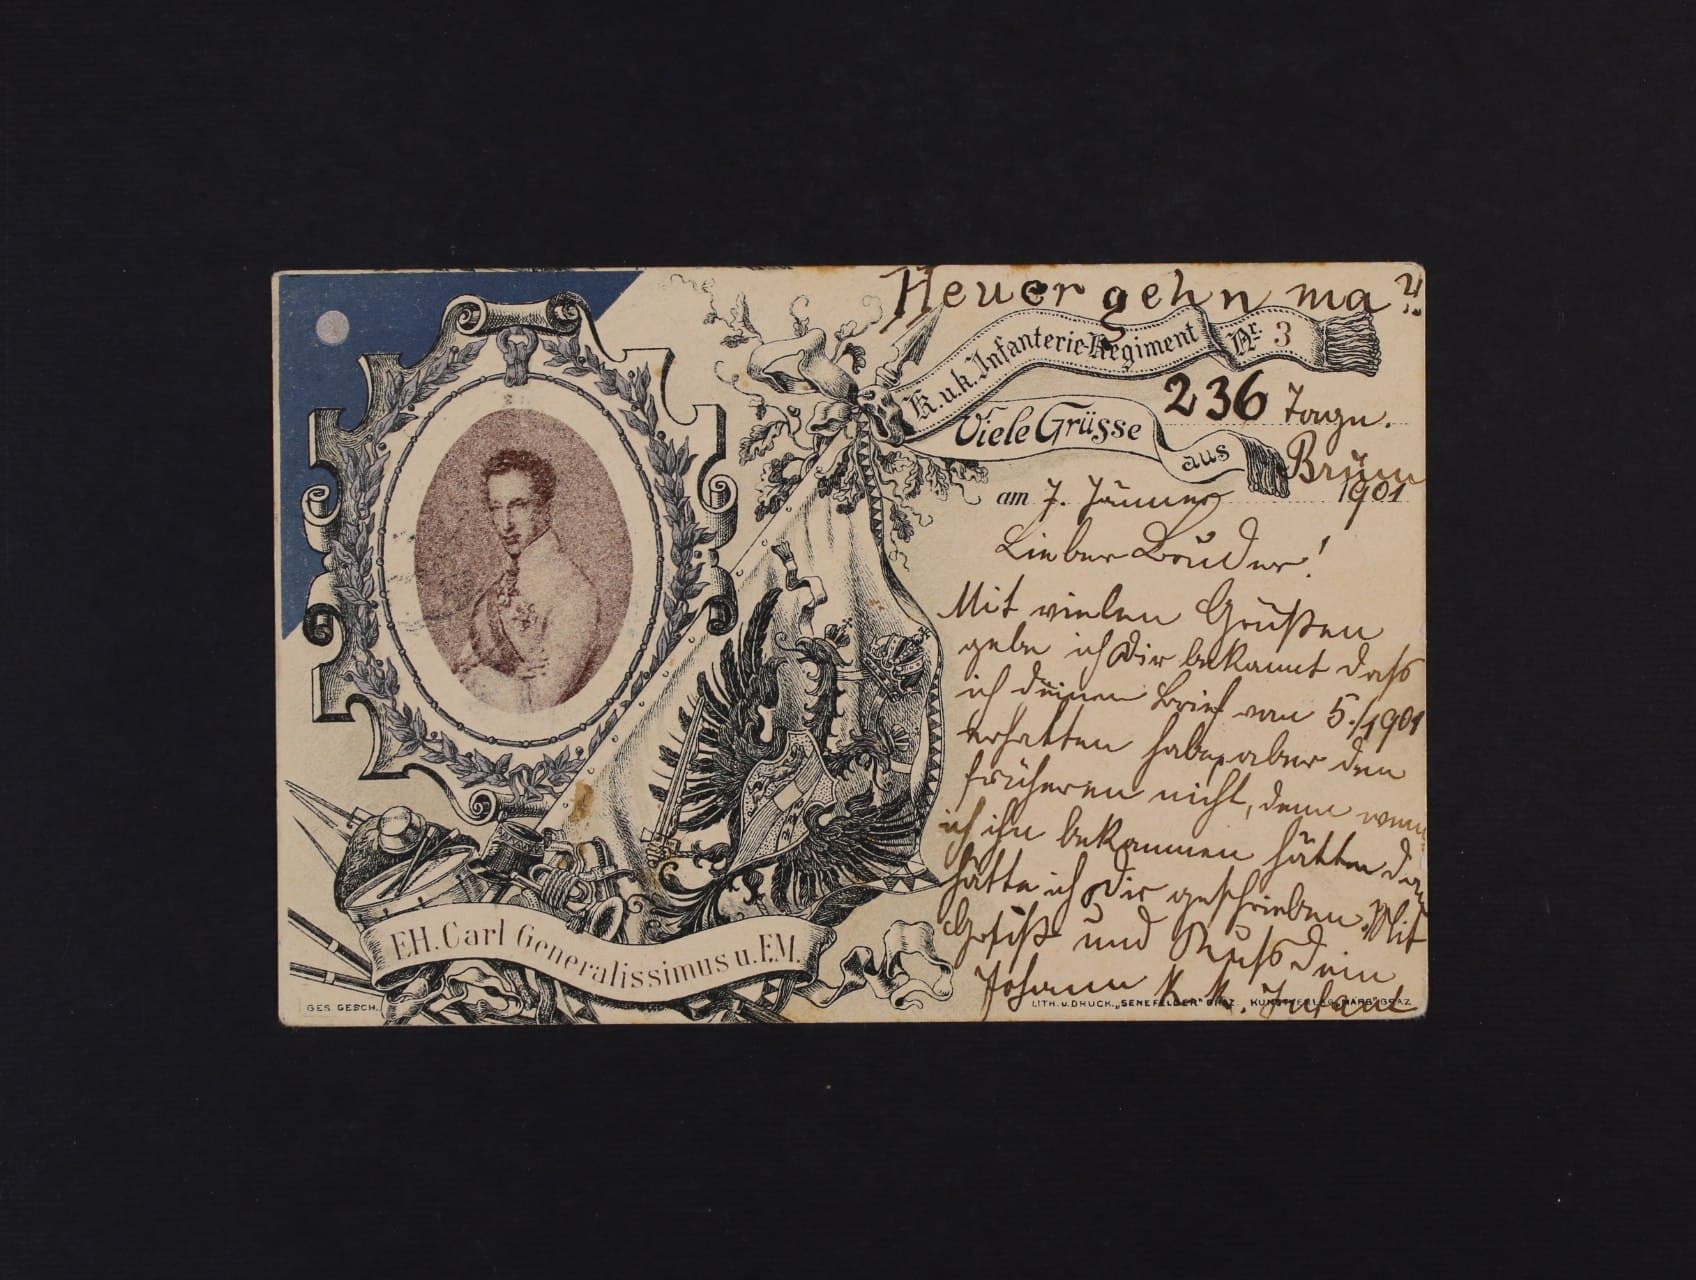 Heuer gehn ma?!
K. u. k. Infanterie-Regiment Nr. 3
236 Tage.
Viele Grüsse aus Brünn
am 7. Jänner 1901
Lieber Bruder!
Mit vielen Grüßen
gebe ich Dir bekannt dass
ich deinen Brief vom 5./1901
erhalten habe, aber den
früheren nicht, denn wenn
ich ihn bekommen hätte
hätte ich Dir geschrieben. Mit
Gruß und Kuss dein
Johann K. K. Infant
E.H. Carl Generalissimus u. F.M.
GES. GESCH.
LITH. u. DRUCK. „SENEFELDER" GRAZ. KUNSTVERLAG GRAZ